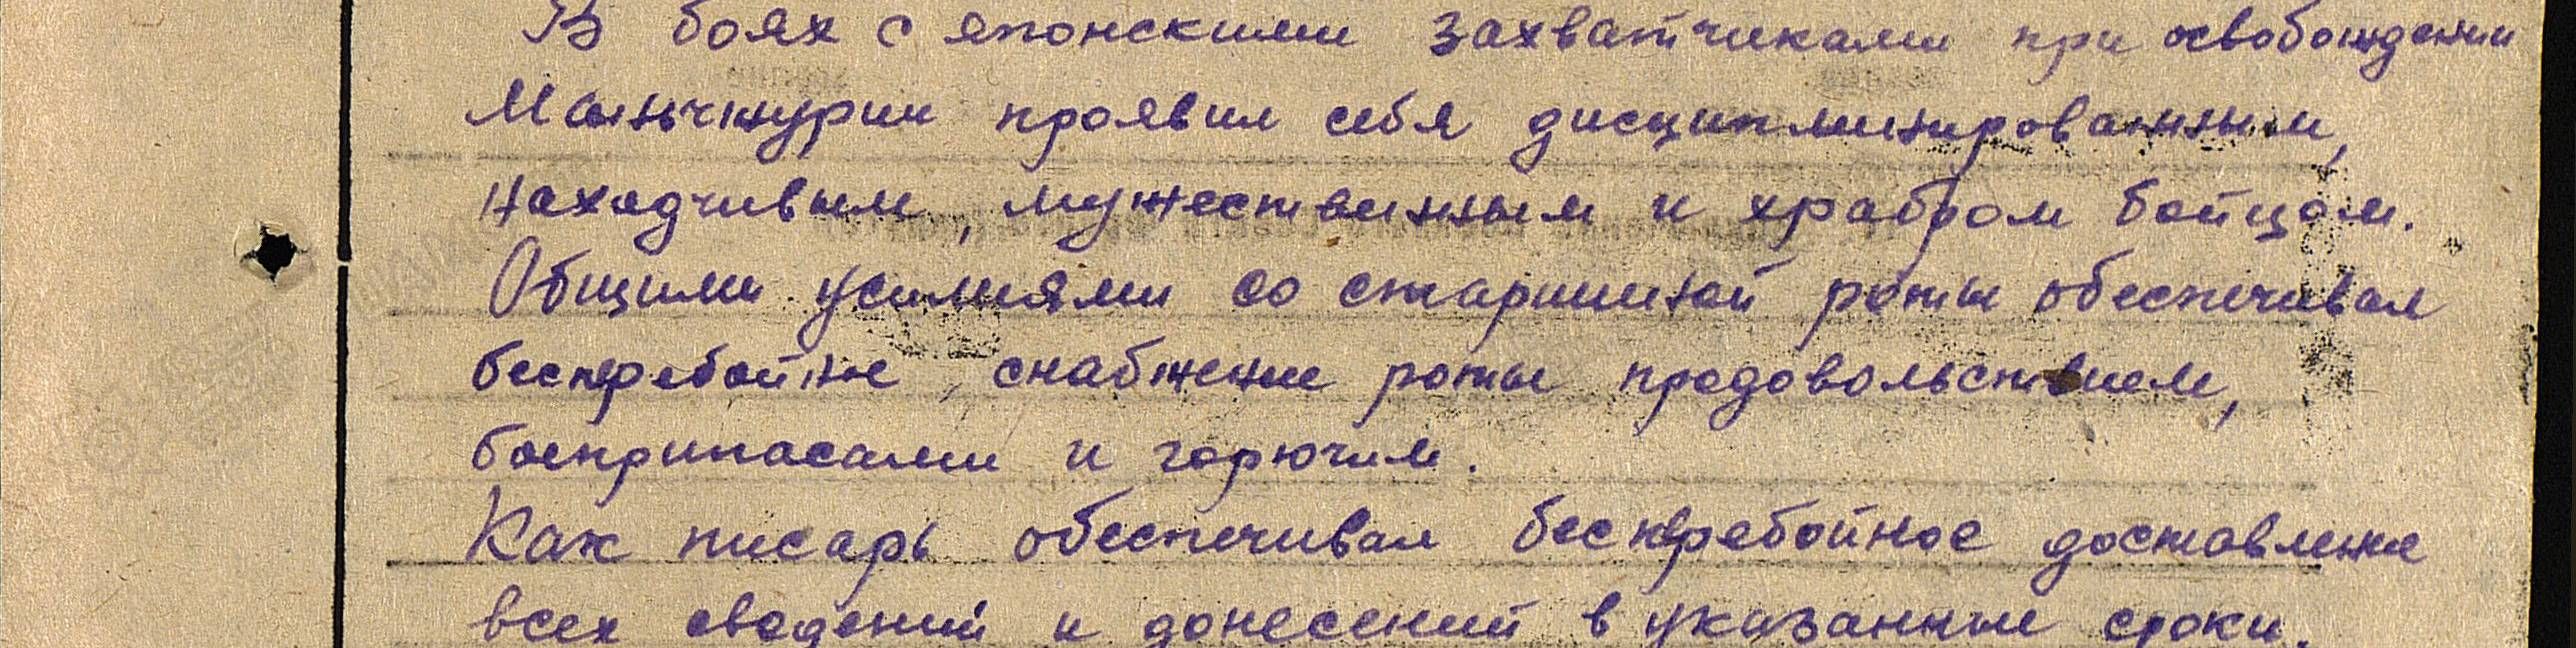 В боях с японскими захватчиками при освобождении
Маньчжурии проявил себя дисциплинированным,
находчивым, мужественным и храбром бойцом.
Общими усилиями со старшиной роты обеспечивал
бесперебойное снабжение роты продовольствием,
боеприпасами и горючим.
Как писарь обеспечивал бесперебойное доставление
всех сведений и донесений в указанные сроки.